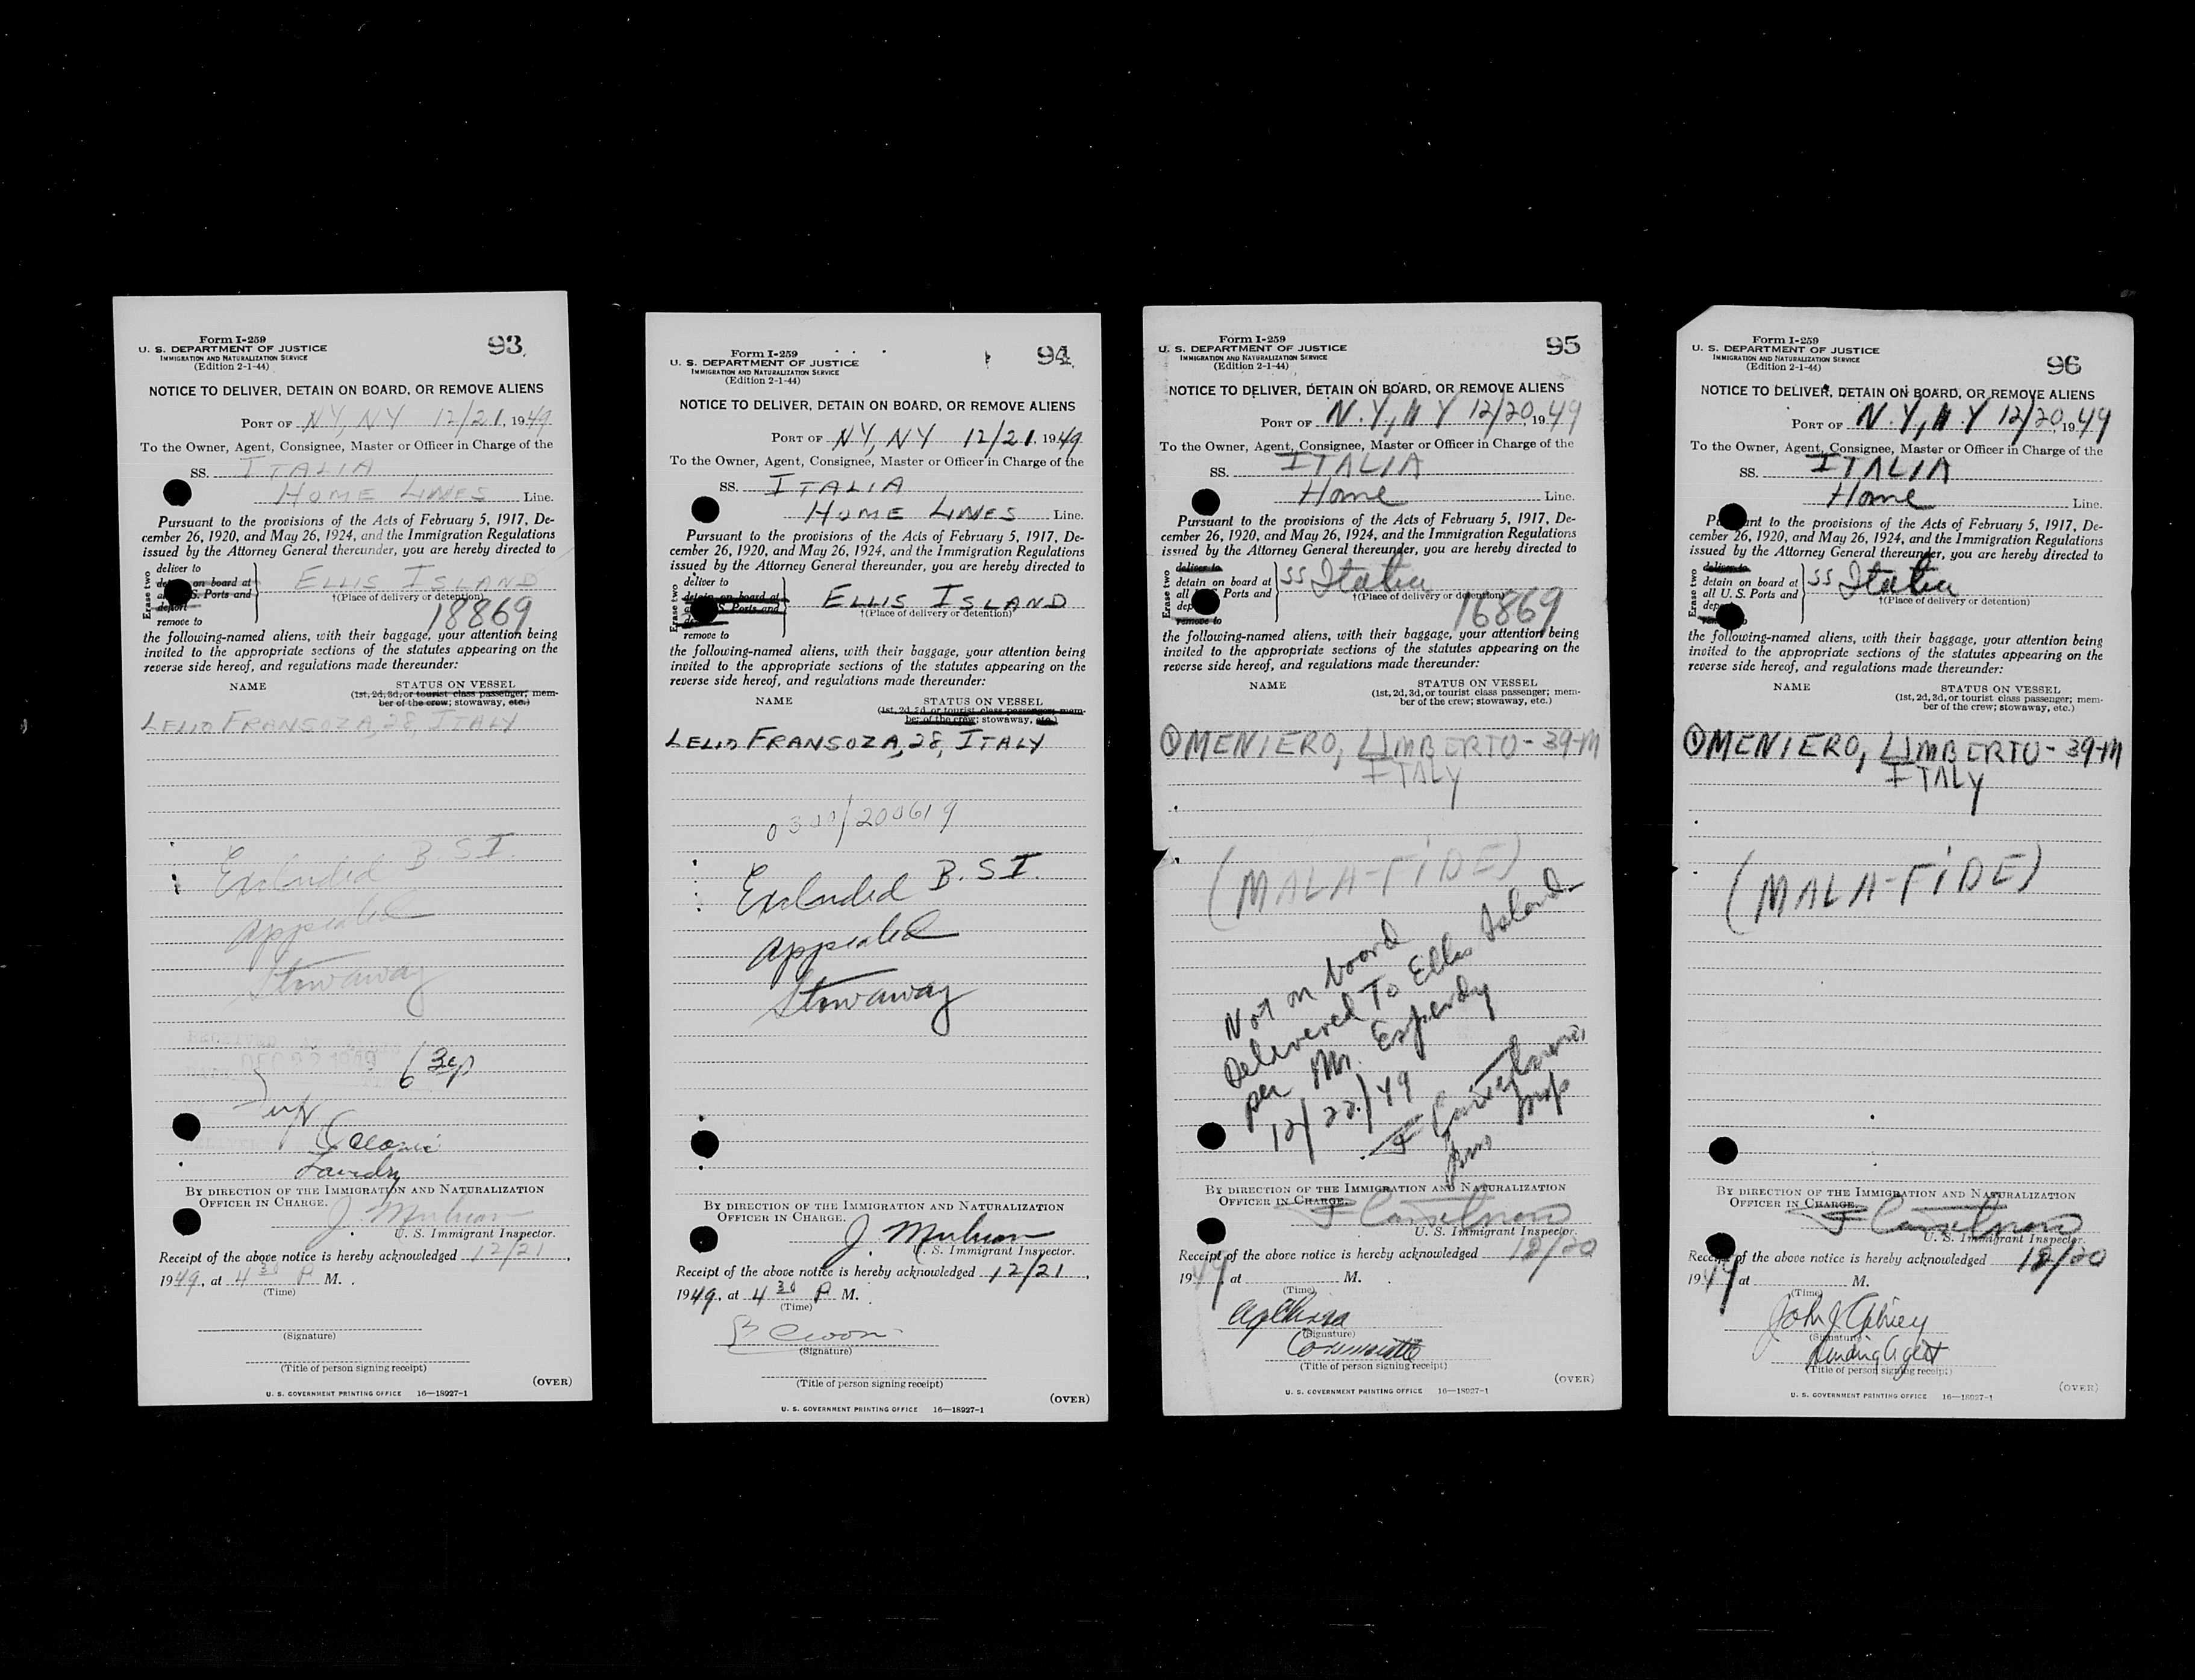 Form I-259
U. S. DEPARTMENT OF JUSTICE
IMMIGRATION AND NATURALIZATION SERVICE
(Edition 2-1-44)
93
NOTICE TO DELIVER, DETAIN ON BOARD, OR REMOVE ALIENS
PORT OF NY, NY 12/21, 1949
To the Owner, Agent, Consignee, Master or Officer in Charge of the
SS. ITALIA
HOME LINES Line.
Pursuant to the provisions of the Acts of February 5, 1917, De-
cember 26, 1920, and May 26, 1924, and the Immigration Regulations
issued by the Attorney General thereunder, you are hereby directed to
Erase two
deliver to
on board at
S. Ports and
deport
remove to
ELLIS ISLAND
†(Place of delivery or detention)
18869
the following-named aliens, with their baggage, your attention being
invited to the appropriate sections of the statutes appearing on the
reverse side hereof, and regulations made thereunder:
NAME STATUS ON VESSEL
(1st, 2d, 3d, or tourist class passenger; mem-
ber of the crew; stowaway, etc.)
LELIO FRANSOZA, 28, ITALY
Excluded B.S.I.
Appealed
Stowaway
DEC 22 1949
BY DIRECTION OF THE IMMIGRATION AND NATURALIZATION
OFFICER IN CHARGE.
U. S. Immigrant Inspector.
Receipt of the above notice is hereby acknowledged 12/21,
1949, at 4 30 P M.
(Time)
(Signature)
(Title of person signing receipt)
(OVER)
U. S. GOVERNMENT PRINTING OFFICE 16—18927-1
Form I-259
U. S. DEPARTMENT OF JUSTICE
IMMIGRATION AND NATURALIZATION SERVICE
(Edition 2-1-44)
94
NOTICE TO DELIVER, DETAIN ON BOARD, OR REMOVE ALIENS
PORT OF NY, NY 12/21, 1949
To the Owner, Agent, Consignee, Master or Officer in Charge of the
SS. ITALIA
HOME LINES Line.
Pursuant to the provisions of the Acts of February 5, 1917, De-
cember 26, 1920, and May 26, 1924, and the Immigration Regulations
issued by the Attorney General thereunder, you are hereby directed to
Erase two
deliver to
detain on board at
S. Ports and
remove to
ELLIS ISLAND
†(Place of delivery or detention)
the following-named aliens, with their baggage, your attention being
invited to the appropriate sections of the statutes appearing on the
reverse side hereof, and regulations made thereunder:
NAME STATUS ON VESSEL
(1st, 2d, 3d, or tourist class passenger; mem-
ber of the crew; stowaway, etc.)
LELIO FRANSOZA, 28, ITALY
0300/200619
Excluded B.S.I.
Appealed
Stowaway
BY DIRECTION OF THE IMMIGRATION AND NATURALIZATION
OFFICER IN CHARGE.
U. S. Immigrant Inspector.
Receipt of the above notice is hereby acknowledged 12/21,
1949, at 4 30 P M.
(Time)
(Signature)
(Title of person signing receipt)
(OVER)
U. S. GOVERNMENT PRINTING OFFICE 16—18927-1
Form I-259
U. S. DEPARTMENT OF JUSTICE
IMMIGRATION AND NATURALIZATION SERVICE
(Edition 2-1-44)
95
NOTICE TO DELIVER, DETAIN ON BOARD, OR REMOVE ALIENS
PORT OF N.Y, NY 12/20, 1949
To the Owner, Agent, Consignee, Master or Officer in Charge of the
SS. ITALIA
Home Line.
Pursuant to the provisions of the Acts of February 5, 1917, De-
cember 26, 1920, and May 26, 1924, and the Immigration Regulations
issued by the Attorney General thereunder, you are hereby directed to
Erase two
deliver to
detain on board at
all Ports and
dep
remove to
SS Italia
†(Place of delivery or detention)
16869
the following-named aliens, with their baggage, your attention being
invited to the appropriate sections of the statutes appearing on the
reverse side hereof, and regulations made thereunder:
NAME STATUS ON VESSEL
(1st, 2d, 3d, or tourist class passenger; mem-
ber of the crew; stowaway, etc.)
① MENIERO, UMBERTO - 39-M
ITALY
(MALA-FIDE)
Not on board
Delivered To Ellis Island
per Mr. Esperdy
12/22/49
BY DIRECTION OF THE IMMIGRATION AND NATURALIZATION
OFFICER IN CHARGE.
U. S. Immigrant Inspector.
Receipt of the above notice is hereby acknowledged 12/20
1949, at M.
(Time)
(Signature)
(Title of person signing receipt)
(OVER)
U. S. GOVERNMENT PRINTING OFFICE 16—18927-1
Form I-259
U. S. DEPARTMENT OF JUSTICE
IMMIGRATION AND NATURALIZATION SERVICE
(Edition 2-1-44)
96
NOTICE TO DELIVER, DETAIN ON BOARD, OR REMOVE ALIENS
PORT OF N.Y, NY 12/20, 1949
To the Owner, Agent, Consignee, Master or Officer in Charge of the
SS. ITALIA
Home Line.
ant to the provisions of the Acts of February 5, 1917, De-
cember 26, 1920, and May 26, 1924, and the Immigration Regulations
issued by the Attorney General thereunder, you are hereby directed to
Erase two
deliver to
detain on board at
all U. S. Ports and
dep
remove to
SS Italia
†(Place of delivery or detention)
the following-named aliens, with their baggage, your attention being
invited to the appropriate sections of the statutes appearing on the
reverse side hereof, and regulations made thereunder:
NAME STATUS ON VESSEL
(1st, 2d, 3d, or tourist class passenger; mem-
ber of the crew; stowaway, etc.)
① MENIERO, UMBERTO - 39-M
ITALY
(MALA-FIDE)
BY DIRECTION OF THE IMMIGRATION AND NATURALIZATION
OFFICER IN CHARGE.
U. S. Immigrant Inspector.
Receipt of the above notice is hereby acknowledged 12/20
1949 at M.
(Time)
John J
(Signature)
(Title of person signing receipt)
(OVER)
U. S. GOVERNMENT PRINTING OFFICE 16—18927-1